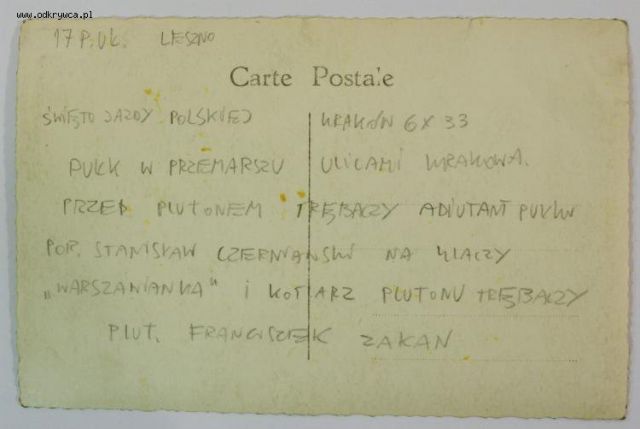 www.odkrywca.pl
17 P. Uł. LESZNO
Carte Postale
ŚWIĘTO JAZDY POLSKIEJ KRAKÓW 6 X 33
PUŁK W PRZEMARSZU ULICAMI KRAKOWA.
PRZED PLUTONEM TRĘBACZY ADIUTANT PUŁKU
POR. STANISŁAW CZERNIAŃSKI NA KLACZY
„WARSZAWIANKA" I KOTLARZ PLUTONU TRĘBACZY
PLUT. FRANCISZEK ZAKAN